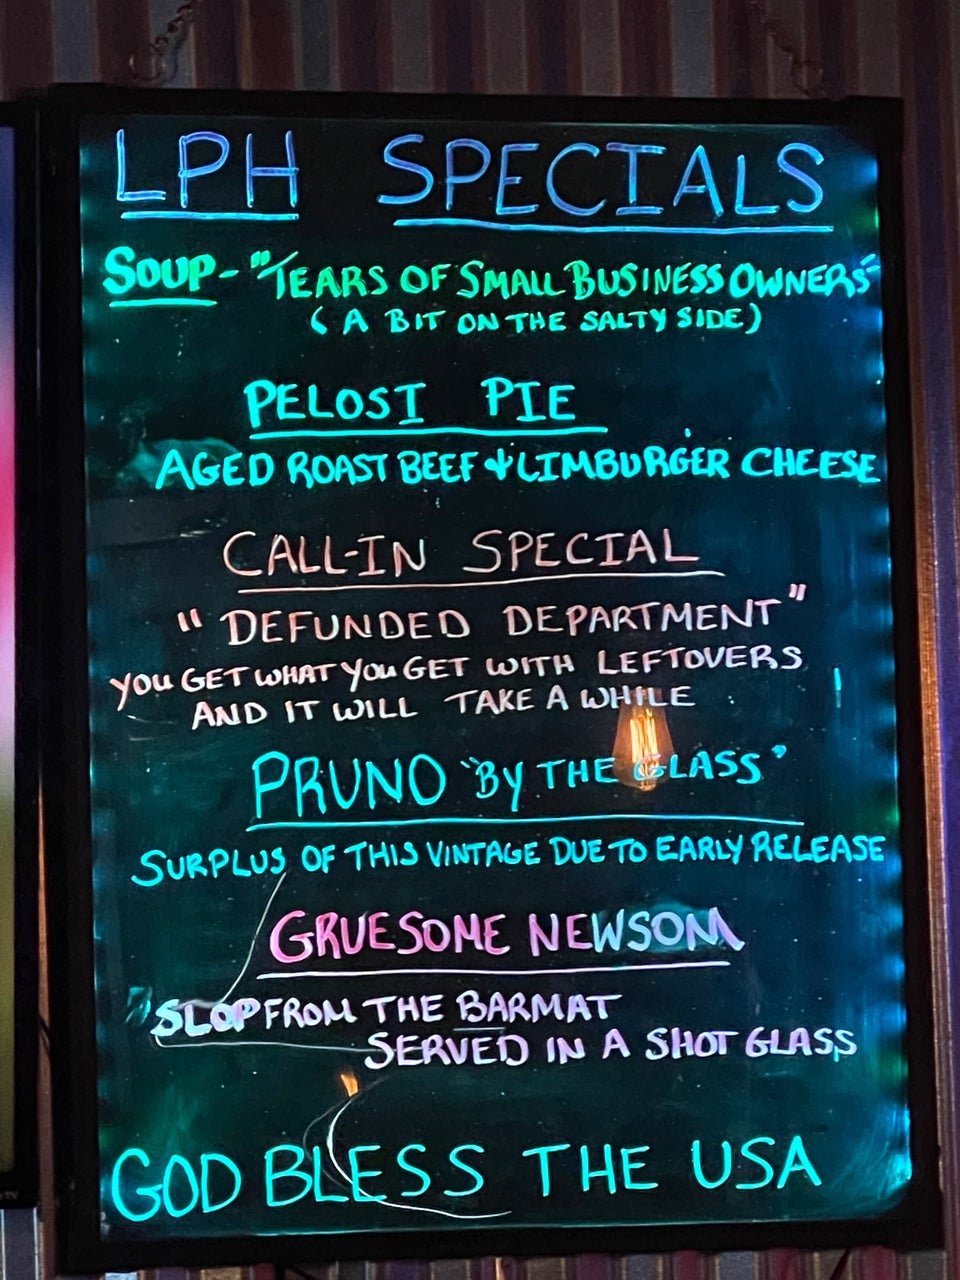 LPH SPECIALS
SOUP - "TEARS OF SMALL BUSINESS OWNERS"
(A BIT ON THE SALTY SIDE)
PELOSI PIE
AGED ROAST BEEF & LIMBURGER CHEESE
CALL-IN SPECIAL
"DEFUNDED DEPARTMENT"
YOU GET WHAT YOU GET WITH LEFTOVERS
AND IT WILL TAKE A WHILE
PRUNO "BY THE GLASS"
SURPLUS OF THIS VINTAGE DUE TO EARLY RELEASE
GRUESOME NEWSOM
SLOP FROM THE BARMAT
SERVED IN A SHOT GLASS
GOD BLESS THE USA